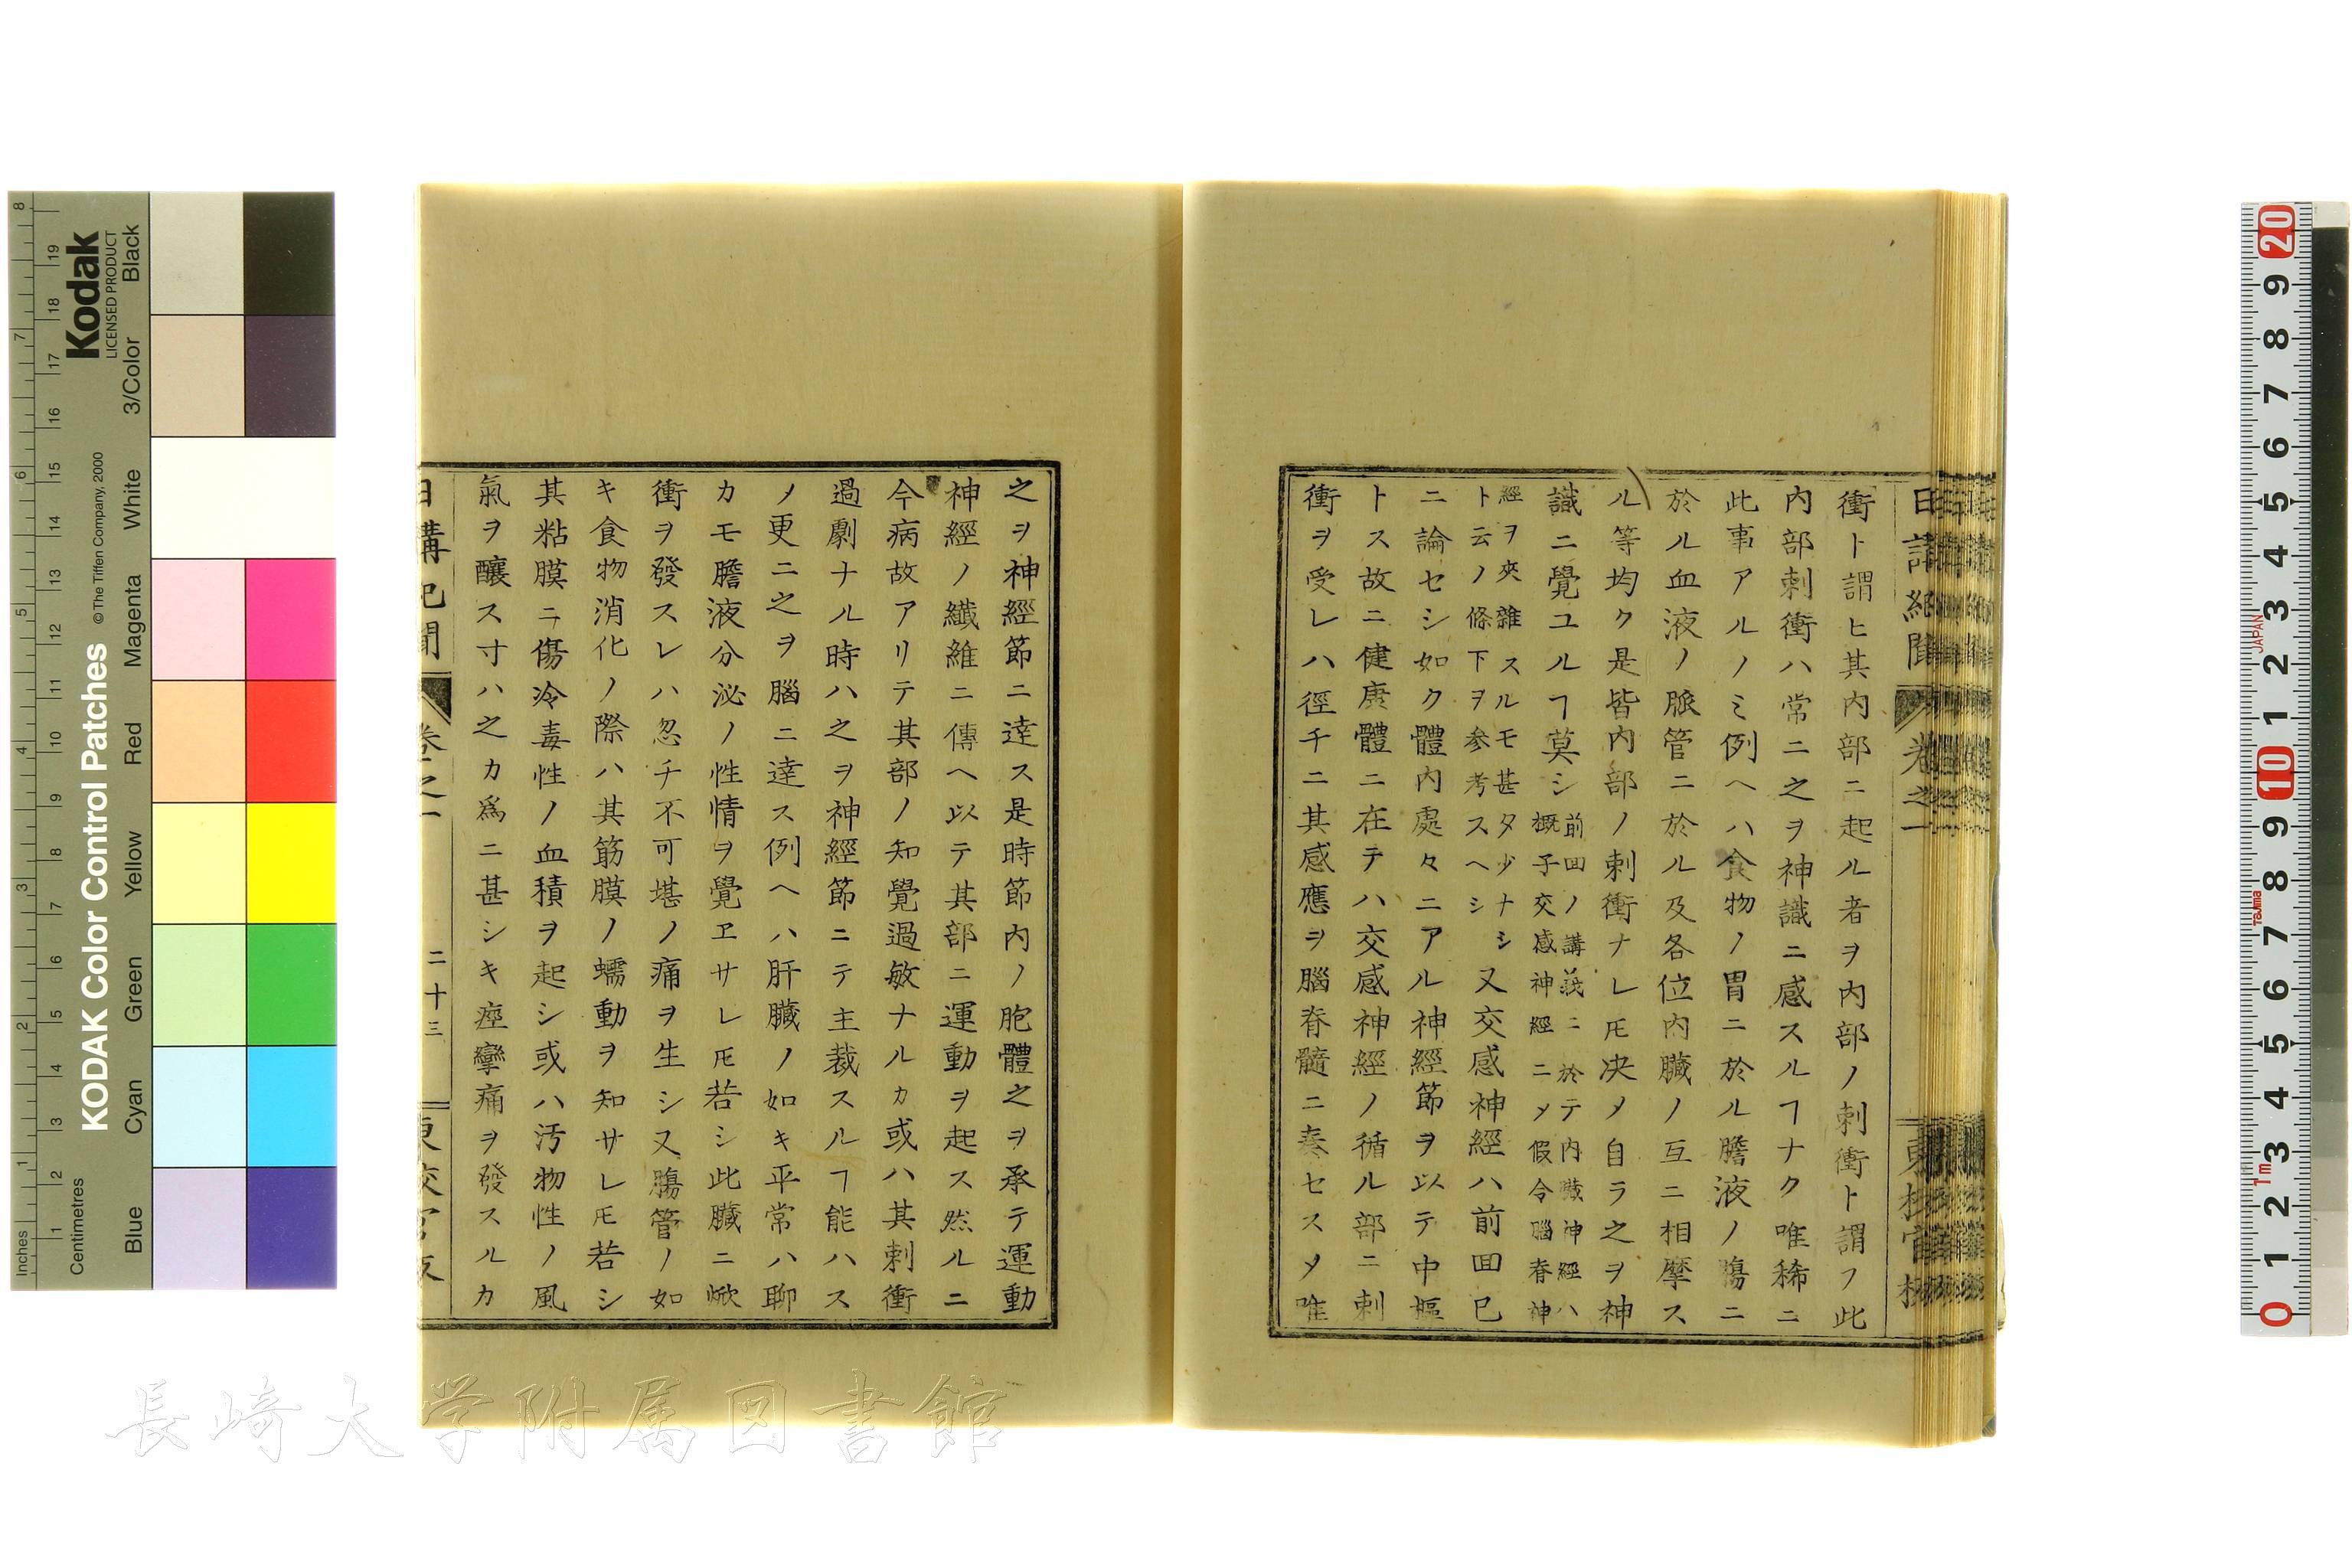 衝ト謂ヒ其内部ニ起ル者ヲ内部ノ刺衝ト謂フ此
内部刺衝ハ常ニ之ヲ神識ニ感スルヿナク唯稀ニ
此事アルノミ例ヘハ食物ノ胃ニ於ル膽液ノ膓ニ
於ル血液ノ脈管ニ於ル及各位内臓ノ互ニ相摩ス
ル等均ク是皆内部ノ刺衝ナレ𪜈决メ自ラ之ヲ神
識ニ覺ユルヿ莫シ
前回ノ講義ニ於テ内臓神經ハ
概子交感神經ニメ假令腦脊神
經ヲ夾雜スルモ甚タ少ナシ
ト云ノ條下ヲ参考スヘシ
又交感神經ハ前回已
ニ論セシ如ク體内處々ニアル神經節ヲ以テ中樞
トス故ニ健康體ニ在テハ交感神經ノ循ル部ニ刺
衝ヲ受レハ徑チニ其感應ヲ腦脊髓ニ奏セスメ唯
之ヲ神經節ニ達ス是時節内ノ胞體之ヲ承テ運動
神經ノ纎維ニ傳ヘ以テ其部ニ運動ヲ起ス然ルニ
今病故アリテ其部ノ知覺過敏ナルカ或ハ其刺衝
過劇ナル時ハ之ヲ神經節ニテ主裁スルヿ能ハス
ノ更ニ之ヲ腦ニ達ス例ヘハ肝臓ノ如キ平常ハ聊
カモ膽液分泌ノ性情ヲ覺ヱサレ𪜈若シ此臓ニ焮
衝ヲ發スレハ忽チ不可堪ノ痛ヲ生シ又膓管ノ如
キ食物消化ノ際ハ其筋膜ノ蠕動ヲ知サレ𪜈若シ
其粘膜ニ傷冷毒性ノ血積ヲ起シ或ハ汚物性ノ風
氣ヲ釀ス寸ハ之カ爲ニ甚シキ痙攣痛ヲ發スルカ
日講記聞 卷之一 二十三
Kodak
LICENSED PRODUCT
KODAK Color Control Patches
© The Tiffen Company, 2000
Inches
Centimetres
Blue Cyan Green Yellow Red Magenta White 3/Color Black
JAPAN
Tajima
1m
長崎大学附属図書館